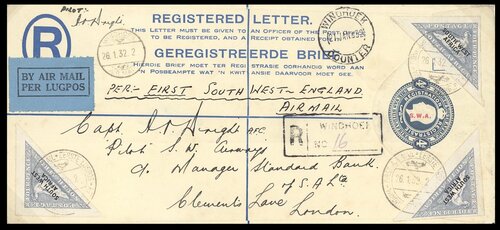 PILOT:-
REGISTERED LETTER.
THIS LETTER MUST BE GIVEN TO AN OFFICER OF THE POST OFFICE
TO BE REGISTERED, AND A RECEIPT OBTAINED FOR IT.
GEREGISTREERDE BRIEF.
HIERDIE BRIEF MOET TER REGISTRASIE OORHANDIG WORD AAN
'N POSAMPTENAAR EN 'N KWITANSIE DAARVOOR MOET GEE.
R
BY AIR MAIL
PER LUGPOS
26.1.32.2
WINDHOEK
COUNTER
PER:- FIRST SOUTH WEST-ENGLAND
AIRMAIL
S.W.A.
R WINDHOEK
No 16
Capt. AFC.
Pilot S.W. Airways
c/o Manager Standard Bank
of S.A. Ltd
Clements Lane London.
26.1.32.2
SOUTH WEST
AFRICA